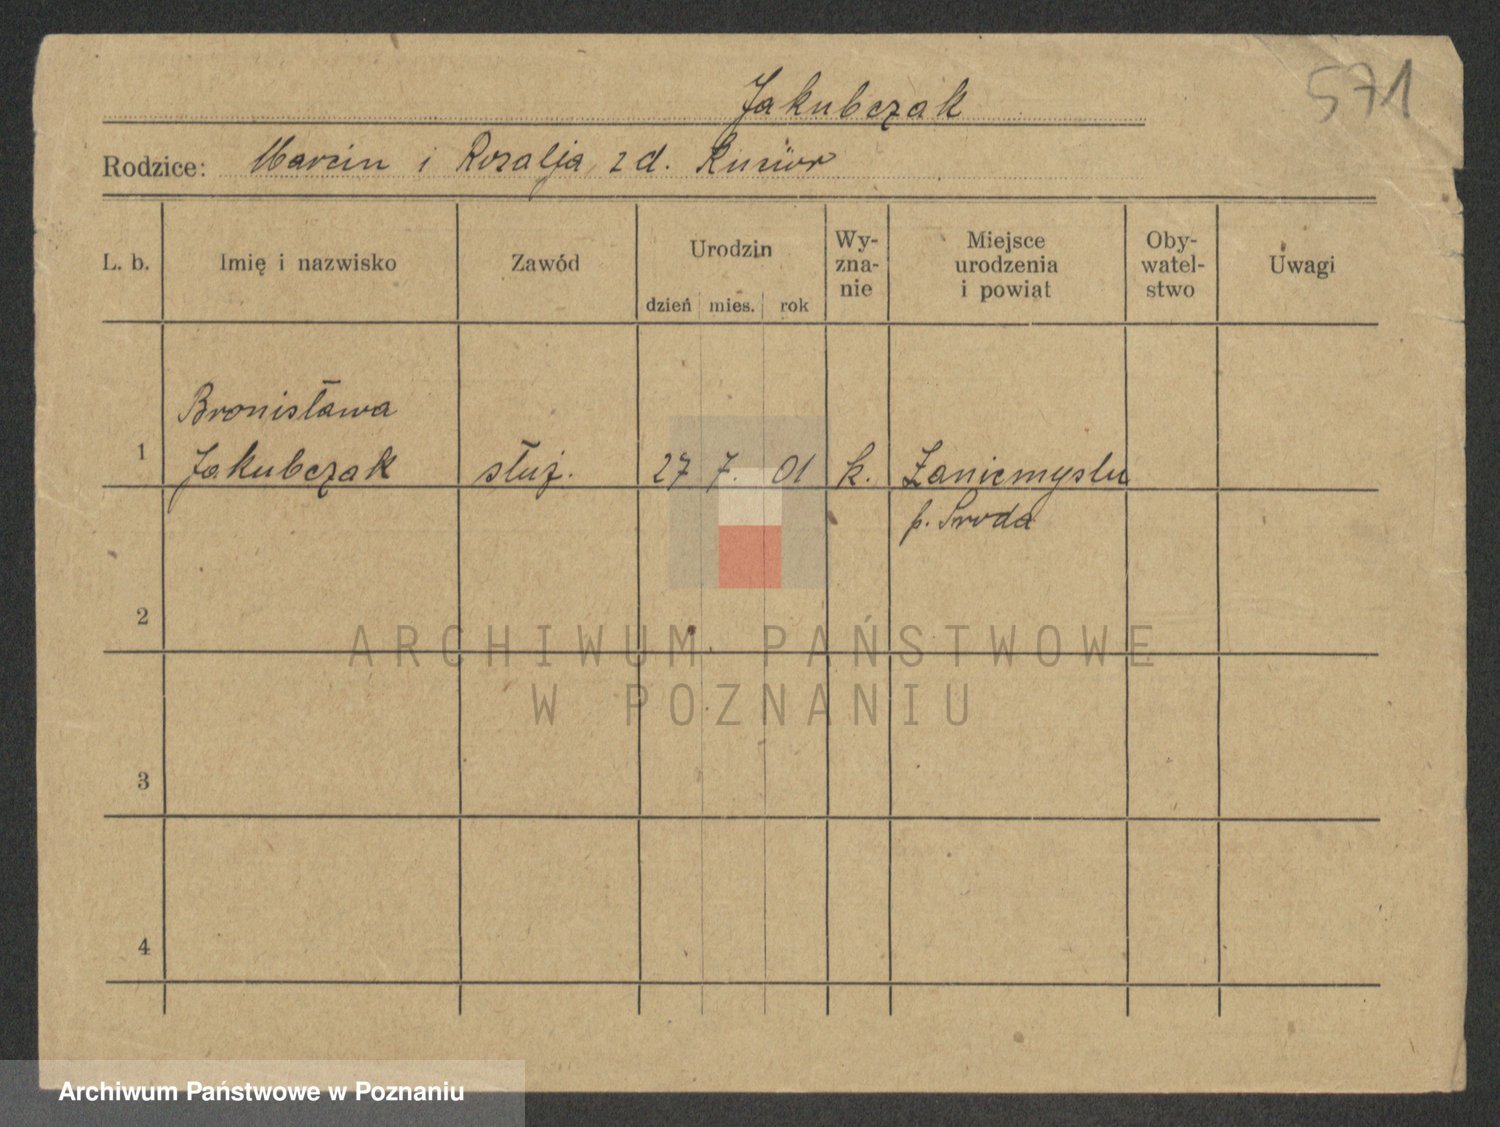 571
Jakubczak
Rodzice: Marcin i Rozalja zd.
L. b. Imię i nazwisko Zawód Urodzin Wy- Miejsce Oby- Uwagi
zna- urodzenia watel-
nie i powiat stwo
dzień mies. rok
Bronisława
1 Jakubczak służ. 27 7. 01 k. Zaniemyślu
p. Środa
2
ARCHIWUM PAŃSTWOWE
W POZNANIU
3
4
Archiwum Państwowe w Poznaniu